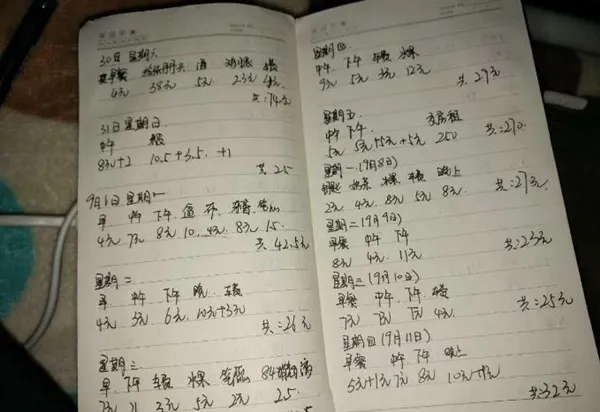 30日 星期六
买早餐 酒 车费
4元 38元 5元 23元 4元
共:74元
31日 星期日
中午 晚
8元+2 10.5+3.5 +1
共25
9月1日 星期一
早 中午 下午
4元 7元 8元 10 4元 8元 1.5
共42.5元
星期二
早 中午 下午 晚 车费
4元 3元 6元 10元+3元
共:26元
星期三
早 下午 车费 水果
3元 5元 2元 25
星期四
中午 下午 车费 水果
9元 5元 3元 12元
共:29元
星期五
中午 下午 交房租
5元 5元+5元+5元 250
共:270
星期一(9月8日)
水果 车费 晚上
2元 4元 8元 5元 8元
共:27元
星期二(9月9日)
早餐 中午 下午
8元 4元 11元
共:23元
星期三(9月10日)
早餐 中午 下午 车费
7元 7元 7元 4元
共:25元
星期四(9月11日)
早餐 中午 下午 晚上
5元+1元 7元 8元 10元+1元
共32元